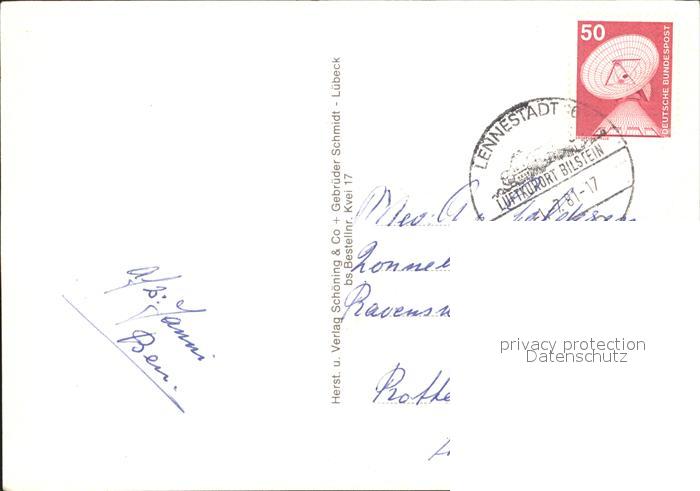 50
DEUTSCHE BUNDESPOST
LENNESTADT
LUFTKURORT BILSTEIN
7.81-17
Herst. u. Verlag Schöning & Co + Gebrüder Schmidt - Lübeck
bs Bestellnr. Kvei 17
Mev.
Zonne
Ravens
Rotte
Afz: Janni
Ben.
privacy protection
Datenschutz